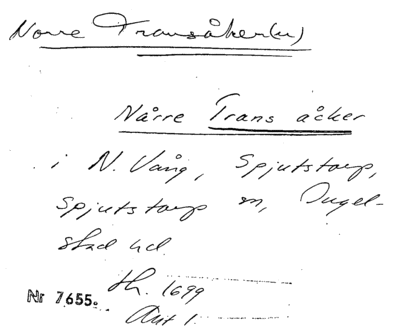 Norre Transåker(n)
Nårre Trans åcker
i N. Vång, Spjutstorp,
Spjutstorp sn, Ingel-
stad hd.
Nr 7655. th. 1699
Ant 1